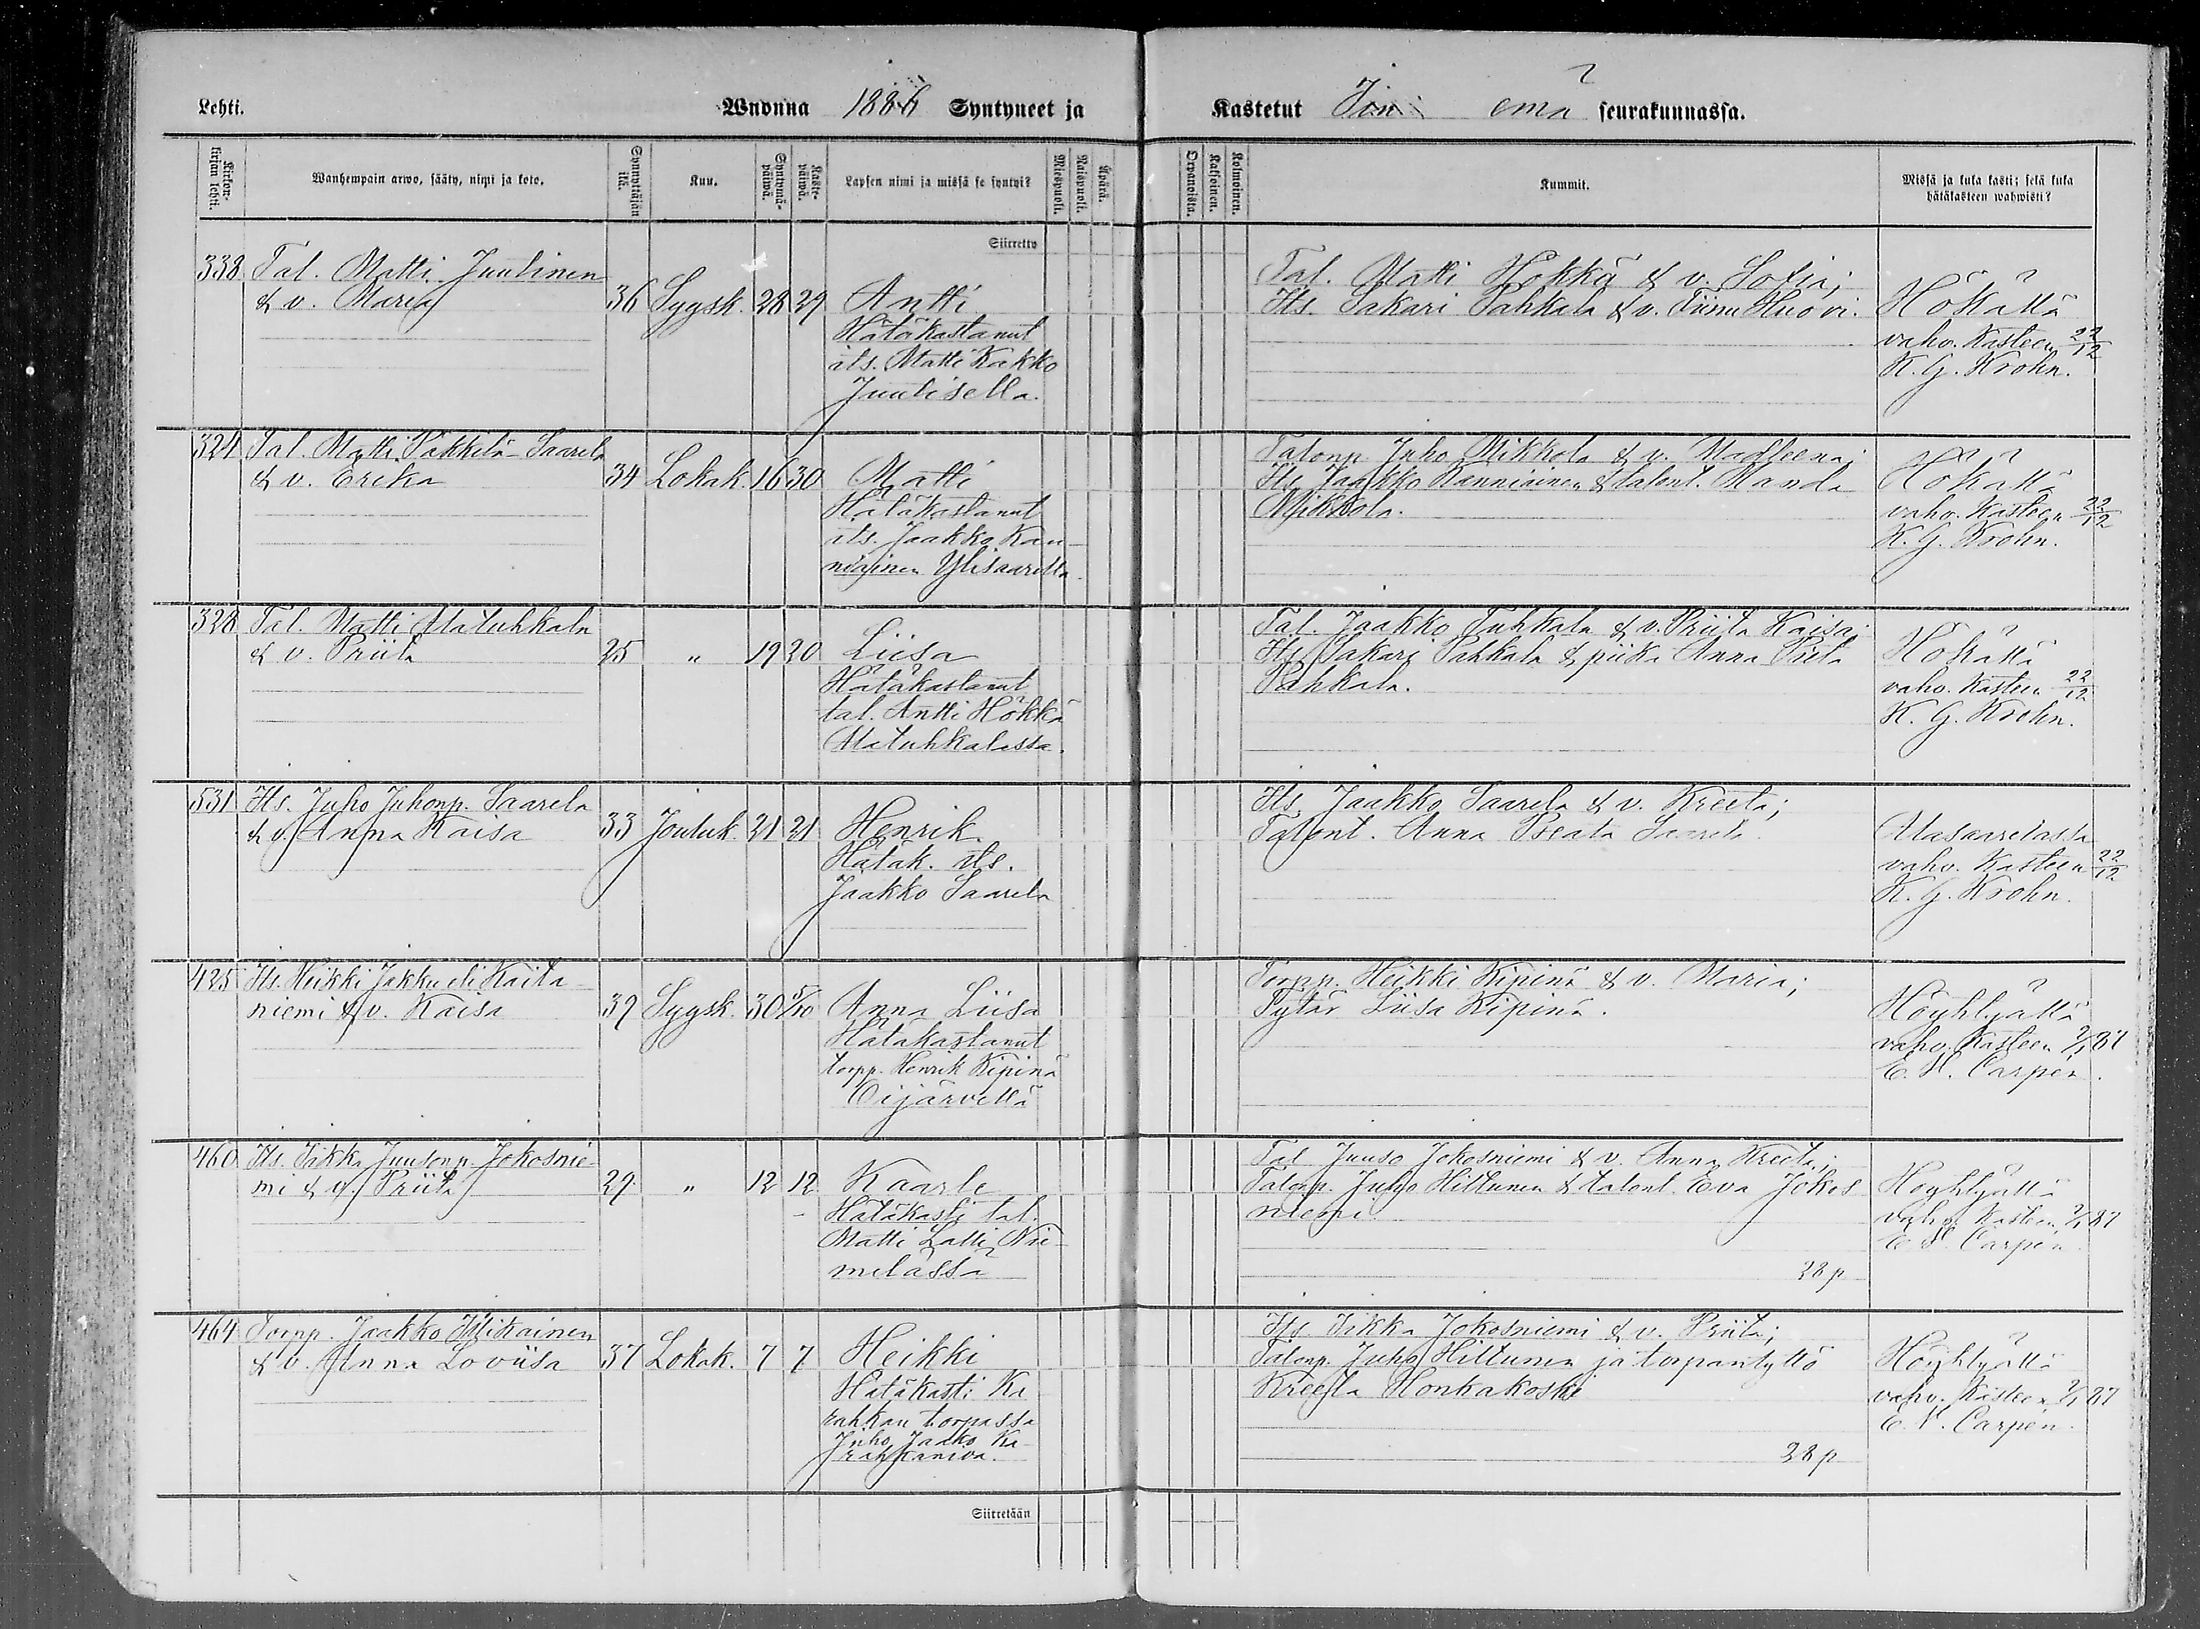 Lehti.
Wuonna 1886 Syntyneet ja
Kastetut Iin emä seurakunnassa.
Kirkon-kirjan lehti.
Wanhempain arwo, sääty, nimi ja koto.
Synnyttäjän ikä.
Kuu.
Syntymä-päiwä.
Kaste-päiwä.
Lapsen nimi ja missä se syntyi?
Miespuoli.
Naispuoli.
Äpärä.
Orpanoista.
Kaksoinen.
Kolmoinen.
Kummit.
Missä ja kuka kasti; sekä kuka hätäkasteen wahwisti?
Siirretty
338 Tal. Matti Juulinen
& v. Maria 36 Syysk. 28 29 Antti
Hätäkastanut
its. Matti Kakko
Juulisella.
Tal. Matti Hökkä & v. Sofia;
Its. Sakari Pahkala & v. Tiinu Huovi.
Hökällä
vahv. kasteen 22/12
K. G. Krohn.
324 Tal. Matti Päkkilä-Saarela
& v. Erika 34 Lokak. 16 30 Matti
Hätäkastanut
its. Jaakko Kan-
niainen Ylisaarella.
Talonp. Juho Mikkola & v. Madleena;
Its. Jaakko Kanniainen & talont. Manda
Mikkola.
Hökällä
vahv. kasteen 22/12
K. G. Krohn.
328 Tal. Matti Alatuhkala
& v. Priita 25 " 19 20 Liisa
Hätäkastanut
tal. Antti Hökkä
Alatuhkalassa.
Tal. Jaakko Tuhkala & v. Priita Kaisa;
Its. Sakari Pahkala & piika Anna Priita
Pahkala.
Hökällä
vahv. kasteen 22/12
K. G. Krohn.
531 Its. Juho Juhonp. Saarela
& v. Anna Kaisa 33 Jouluk. 21 21 Henrik.
Hätäk. its.
Jaakko Saarela
Its. Jaakko Saarela & v. Kreeta;
Talont. Anna Beata Saarela.
Alasaarelassa
vahv. kasteen 22/12
K. G. Krohn.
425 Its. Heikki Jakku eli Kaita-
niemi & v. Kaisa 39 Syysk. 30 5/10 Anna Liisa
Hätäkastanut
torpp. Henrik Kipinä
Oijärvellä
Torpp. Heikki Kipinä & v. Maria;
Tytär Liisa Kipinä.
Höyhtyällä
vahv. kasteen 2/1 87
E. N. Carpén.
460 Its. Iikka Juusonp. Jokosnie-
mi & v. Priita 29 " 12 12 Kaarle
Hätäkasti tal.
Matti Lalli Nie-
melässä
Tal. Juuso Jokosniemi & v. Anna Kreeta;
Talonp. Juho Hiltunen & talont. Eva Jokos
niemi.
28 p
Höyhtyällä
vahv. kasteen 2/1 87
E. N. Carpén.
464 Torpp. Jaakko
& v. Anna Loviisa 37 Lokak. 7 7 Heikki
Hätäkasti Ka
rahkan torpassa
Juho Jaako Ka
rahkaniva.
Its. Iikka Jokosniemi & v. Priita;
Talonp. Juho Hiltunen ja torpantyttö
Kreeta Honkakoski
28 p
Höyhtyällä
vahv. kasteen 2/1 87
E. N. Carpén.
Siirretään